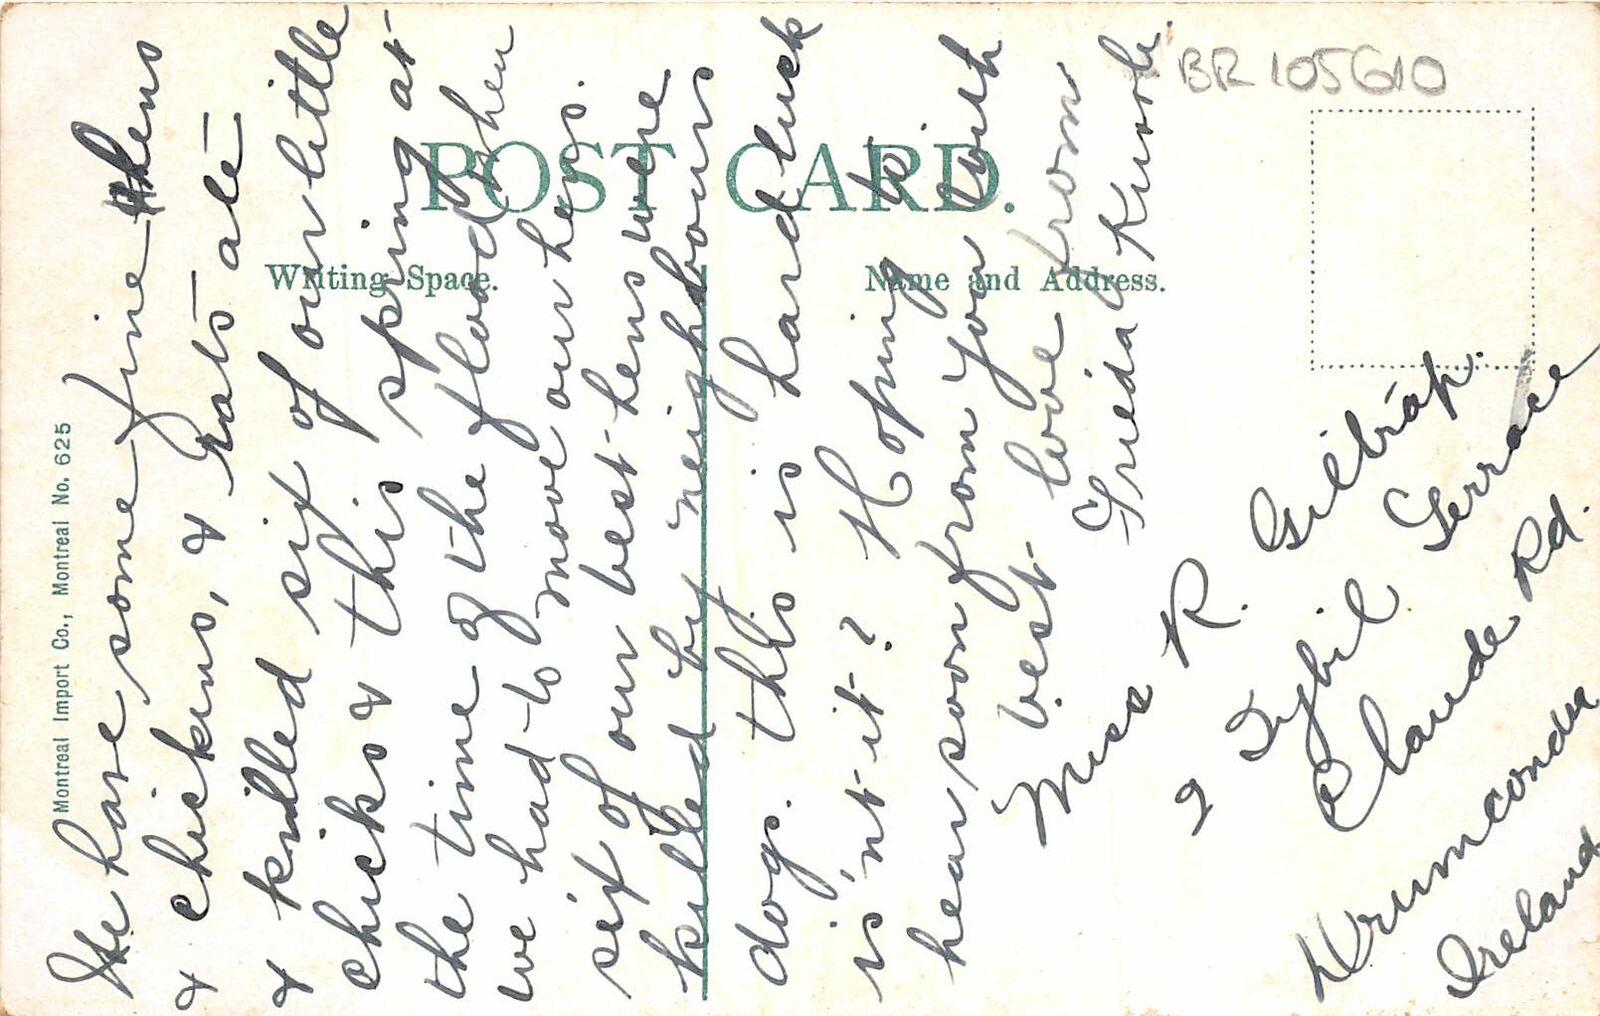 We have some fine hens
& chickens, & Rats ate
& killed six of our little
chicks & this spring at
the time of the flood when
we had to move our hens.
six of our best hens were
killed by neighbours
dogs. this is hard luck
is'nt it? Hoping to
hear soon from you with
best love from
Frieda
Miss R. Gilbrāp.
2 Sybil Terrace
Claude Rd.
Drumcondra
Ireland
POST CARD.
Writing Space.
Name and Address.
Montreal Import Co., Montreal No. 625
BR 105610